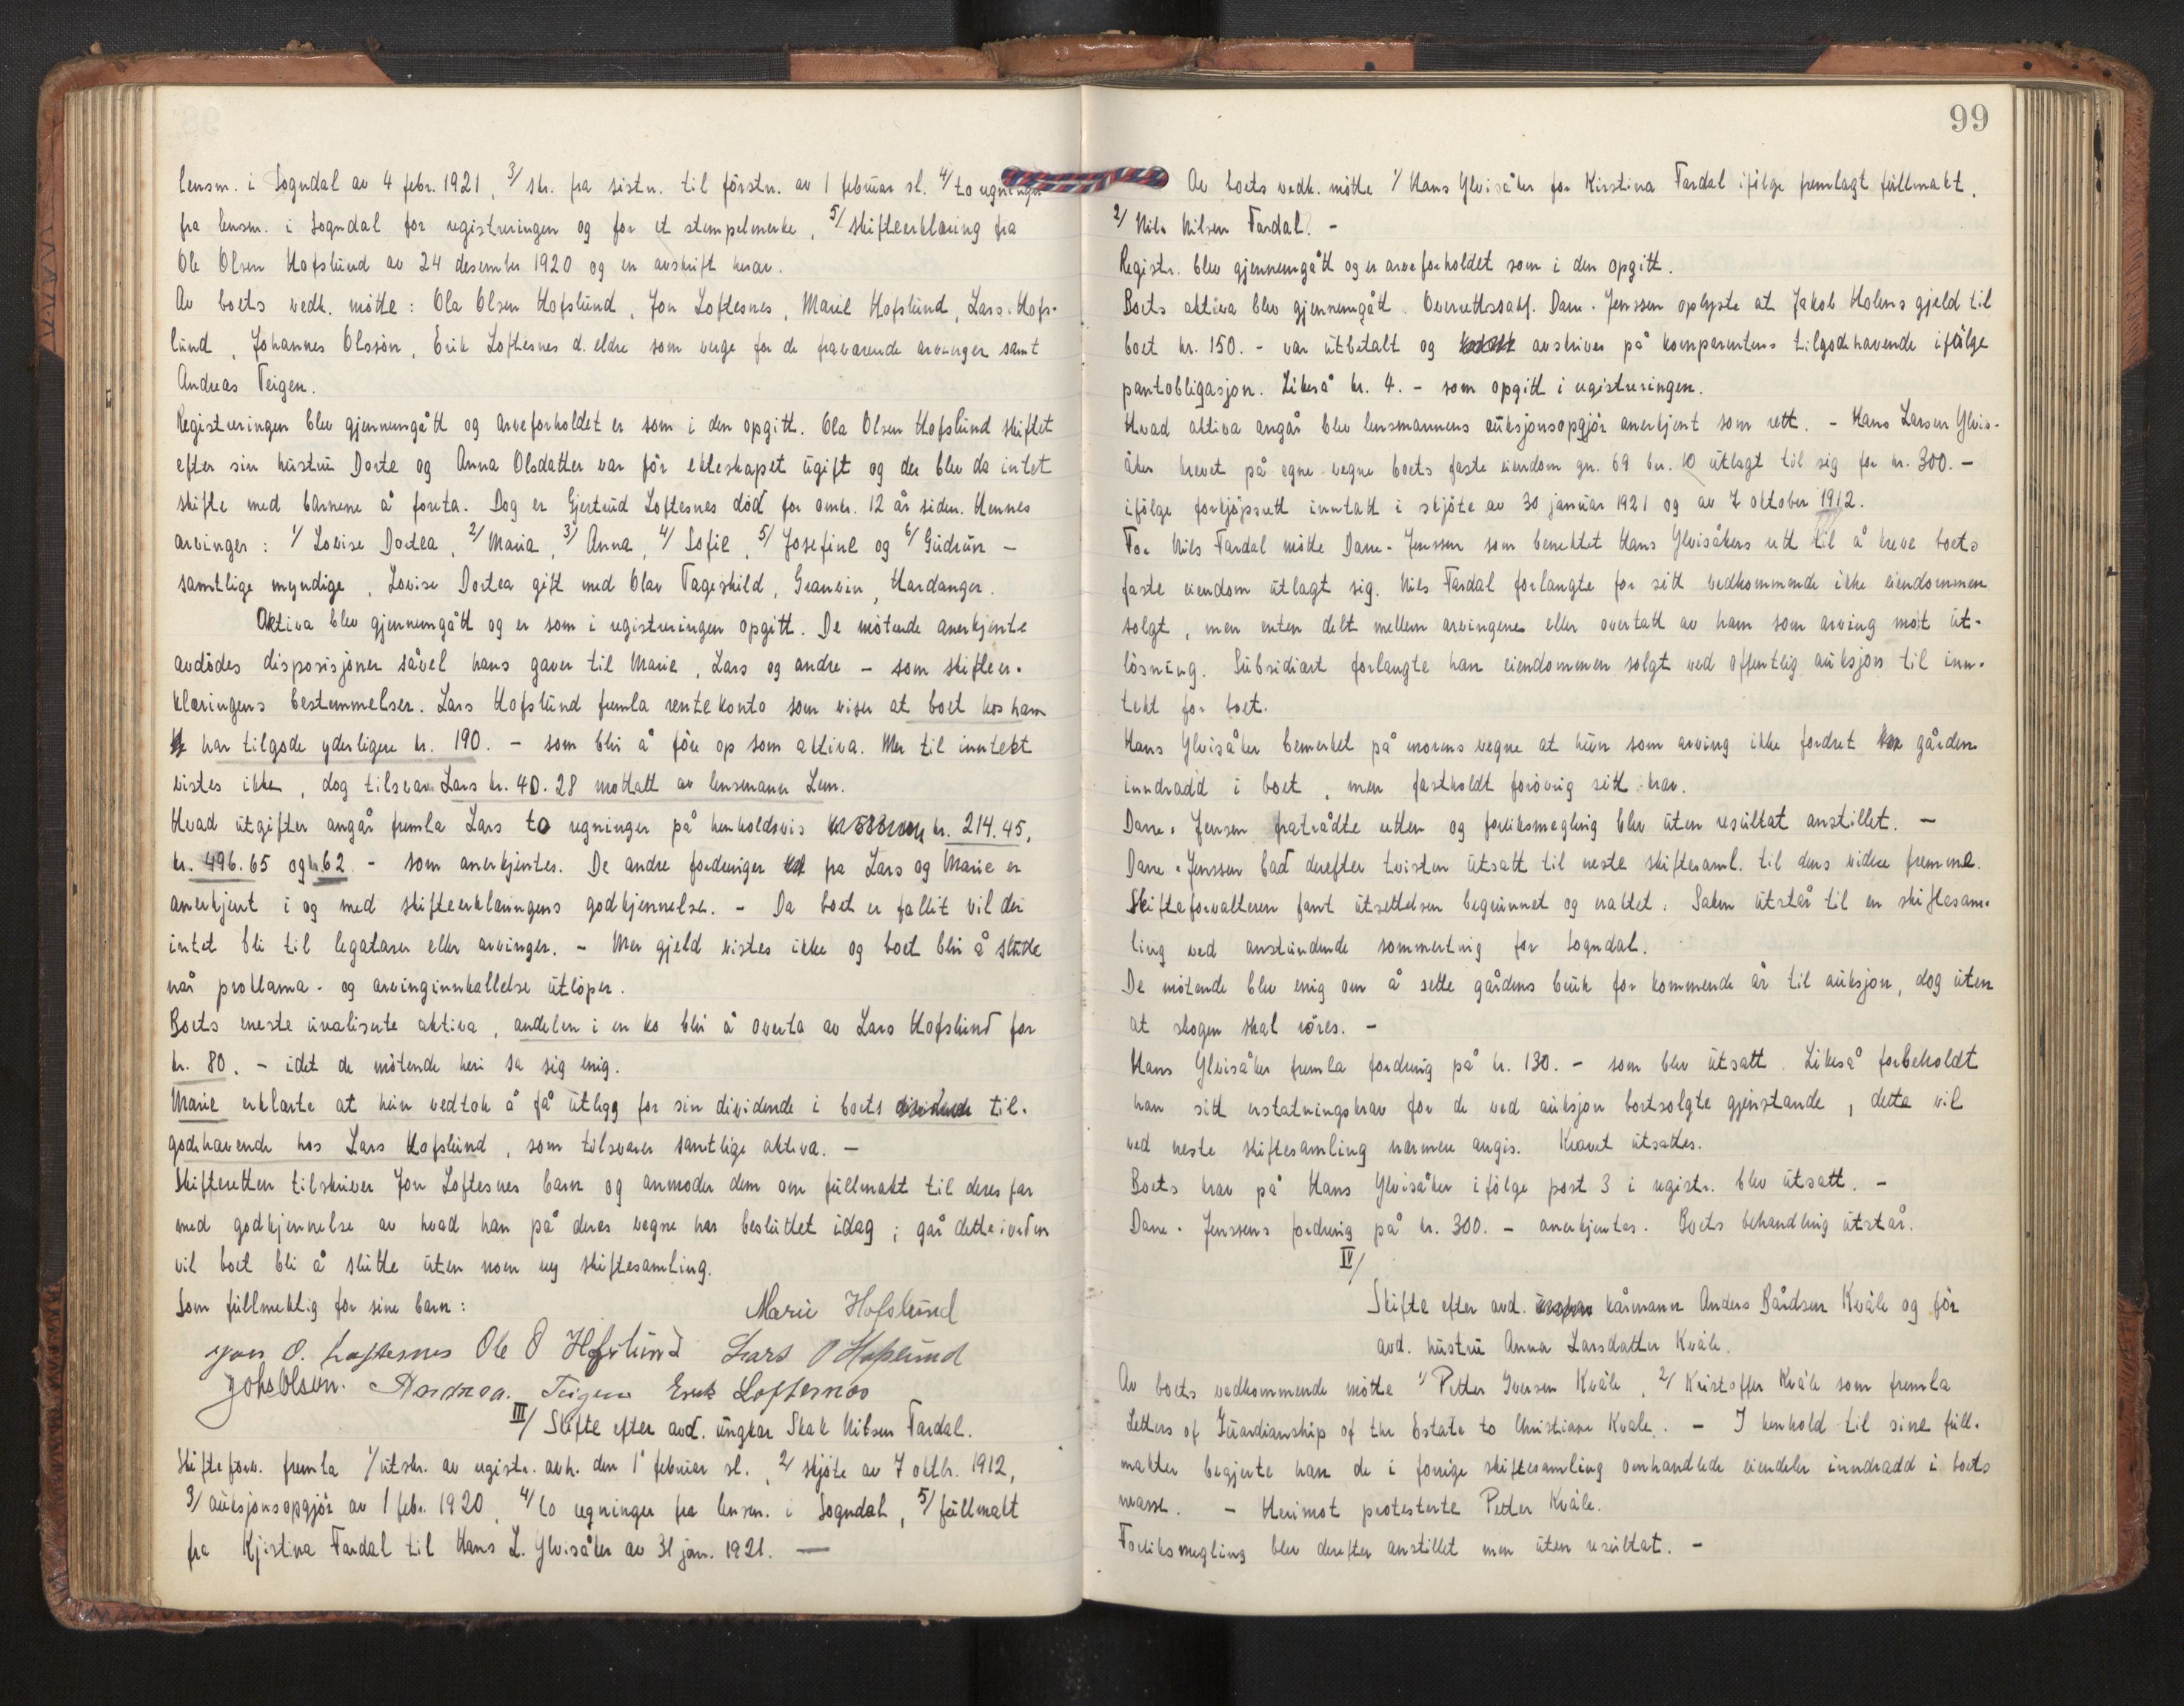 lensm. i Sogndal av 4 febr. 1921, 3/ skr. fra sistn. til förstn. av 1 februar sl. 4/ to regninger
fra lensm. i Sogndal for registreringen og for et stempelmerke, 5/ skifteerklæring fra
Ole Olsen Hofslund av 24 desember 1920 og en avskrift herav.
Av boets vedk. mötte: Ola Olsen Hofslund, Jon Loftesnes, Marie Hofslund, Lars Hofs-
lund, Johannes Olssön, Erik Loftesnes d. eldre som verge for de fraværende arvinger samt
Andreas Teigen.
Registreringen blev gjennemgått og arveforholdet er som i den opgitt. Ola Olsen Hofslund skiftet
efter sin hustru Dorte og Anna Olsdatter var för ekteskapet ugift og der blev da intet
skifte med barnene å foreta. Dog er Gjertrud Loftesnes död for omkr. 12 år siden. Hennes
arvinger: 1/ Lovise Dortea, 2/ Maria, 3/ Anna, 4/ Sofie, 5/ Josefine og 6/ Gudrun -
samtlige myndige, Lovise Dortea gift med Olav Tageskild, Granvin, Hardanger.
Aktiva blev gjennemgått og er som i registreringen opgitt. De mötende anerkjente
avdödes disposisjoner såvel hans gaver til Marie, Lars og andre - som skifteer-
klæringens bestemmelser. Lars Hofslund fremla rentekonto som viser at boet hos ham
har tilgode yderligere kr. 190. - som blir å före op som aktiva. Mer til inntekt
vistes ikke, dog tilsvarer Lars kr. 40.28 mottatt av lensmann Lem.
Hvad utgifter angår fremla Lars to regninger på henholdsvis kr. 214.45,
kr. 496.65 og kr. 62. - som anerkjentes. De andre fordringer fra Lars og Marie er
anerkjent i og med skifteerklæringens godkjennelse. - Da boet er fallit vil der
intet bli til legatarer eller arvinger. - Mer gjeld vistes ikke og boet blir å slutte
når proklama- og arvinginnkallelse utlöper.
Boets eneste urealiserte aktiva, andelen i en ko blir å overta av Lars Hofslund for
kr. 80. - idet de mötende heri sa sig enig.
Marie erklærte at hun vedtok å få utlegg for sin dividende i boets til-
godehavende hos Lars Hofslund, som tilsvarer samtlige aktiva. -
Skifteretten tilskriver Jon Loftesnes barn og anmoder dem om fullmakt til deres far
med godkjennelse av hvad han på deres vegne har besluttet idag; går dette i orden
vil boet bli å slutte uten noen ny skiftesamling.
Som fullmektig for sine barn:
Marie Hofslund
Jon O. Loftesnes Ole O Hofslund Lars O Hofslund
Johs Olsen. Andreas Teigen Erik Loftesnes
III/ Skifte efter avd. ungkar Skak Nilsen Fardal.
Skifteforv. fremla 1/ utskr. av registr. avh. den 1 februar sl., 2/ skjöte av 7 oktbr. 1912,
3/ auksjonsopgjör av 1 febr. 1920, 4/ to regninger fra lensm. i Sogndal, 5/ fullmakt
fra Kjistina Fardal til Hans L. Ylvisåker av 31 jan. 1921. -
99
Av boets vedk. mötte 1/ Hans Ylvisåker for Kirstina Fardal ifölge fremlagt fullmakt.
2/ Nils Nilsen Fardal. -
Registr. blev gjennemgått og er arveforholdet som i den opgitt.
Boets aktiva blev gjennemgått. Overrettssakf. Dane-Jenssen oplyste at Jakob Holens gjeld til
boet kr. 150. - var utbetalt og avskrives på komparentens tilgodehavende ifölge
pantobligasjon. Likeså kr. 4. - som opgitt i registreringen.
Hvad aktiva angår blev lensmannens auksjonsopgjör anerkjent som rett. - Hans Larsen Ylvis-
åker krevet på egne vegne boets faste eiendom gn. 69 br. 10 utlagt til sig for kr. 300. -
ifölge forkjöpsrett inntatt i skjöte av 30 januar 1921 og av 7 oktober 1912.
For Nils Fardal mötte Dane-Jenssen som benektet Hans Ylvisåkers rett til å kreve boets
faste eiendom utlagt sig. Nils Fardal forlangte for sitt vedkommende ikke eiendommen
solgt, men enten delt mellem arvingene eller overtatt av ham som arving mot ut-
lösning. Subsidiært forlangte han eiendommen solgt ved offentlig auksjon til inn-
tekt for boet.
Hans Ylvisåker bemerket på morens vegne at hun som arving ikke fordret gården
inndradd i boet, men fastholdt forövrig sitt krav.
Dane-Jensen fratrådte retten og forliksmegling blev uten resultat anstillet. -
Dane-Jenssen bad derefter tvisten utsatt til neste skiftesaml. til dens videre fremme.
Skifteforvalteren fant utsettelsen begrunnet og Saken utstår til en skiftesam-
ling ved anstundende sommerting for Sogndal.
De mötende blev enig om å sette gårdens bruk for kommende år til auksjon, dog uten
at skogen skal röres. -
Hans Ylvisåker fremla fordring på kr. 130. - som blev utsatt. Likeså forbeholdt
han sitt erstatningskrav for de ved auksjon bortsolgte gjenstande, dette vil
ved neste skiftesamling nærmere angis. Kravet utsattes.
Boets krav på Hans Ylvisåker ifölge post 3 i registr. blev utsatt. -
Dane-Jenssens fordring på kr. 300. - anerkjentes. Boets behandling utstår.
IV/
Skifte efter avd. kårmann Anders Bårdsen Kvåle og för
avd. hustru Anna Larsdatter Kvåle.
Av boets vedkommende mötte 1/ Petter Iversen Kvåle, 2/ Kristoffer Kvåle som fremla
Letters of Guardianship of the Estate to Christiane Kvale. - I henhold til sine full-
makter begjerte han de i forrige skiftesamling omhandlede eiendeler inndradd i boets
masse. - Herimot protesterte Petter Kvåle.
Forliksmegling blev derefter anstillet men uten resultat. -